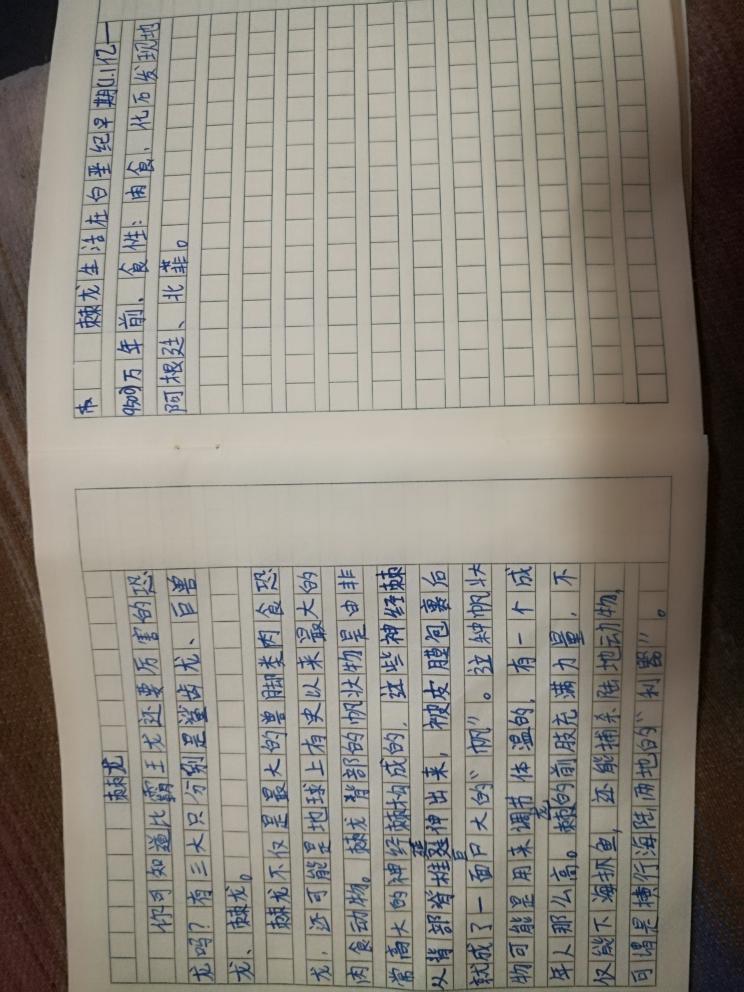 棘龙
你可知道比霸王龙还要厉害的恐
龙吗？有三大只分别是鲨齿龙、巨兽
龙、棘龙。
棘龙不仅是最大的兽脚类肉食恐
龙，还可能是地球上有史以来最大的
肉食动物。棘龙背部的帆状物是由非
常高大的神经棘构成的，这些神经棘
从背部脊椎延伸出来，被皮膜包裹后
就成了一面巨大的“帆”。这种帆状
物可能是用来调节体温的，有一个成
年人那么高。棘龙的前肢充满力量，不
仅能下海抓鱼，还能捕杀陆地动物，
可谓是横行海陆两地的“利器”。
棘龙生活在白垩纪早期(1.1亿—
9500)万年前，食性：肉食、化石发现地
阿根廷、北非。